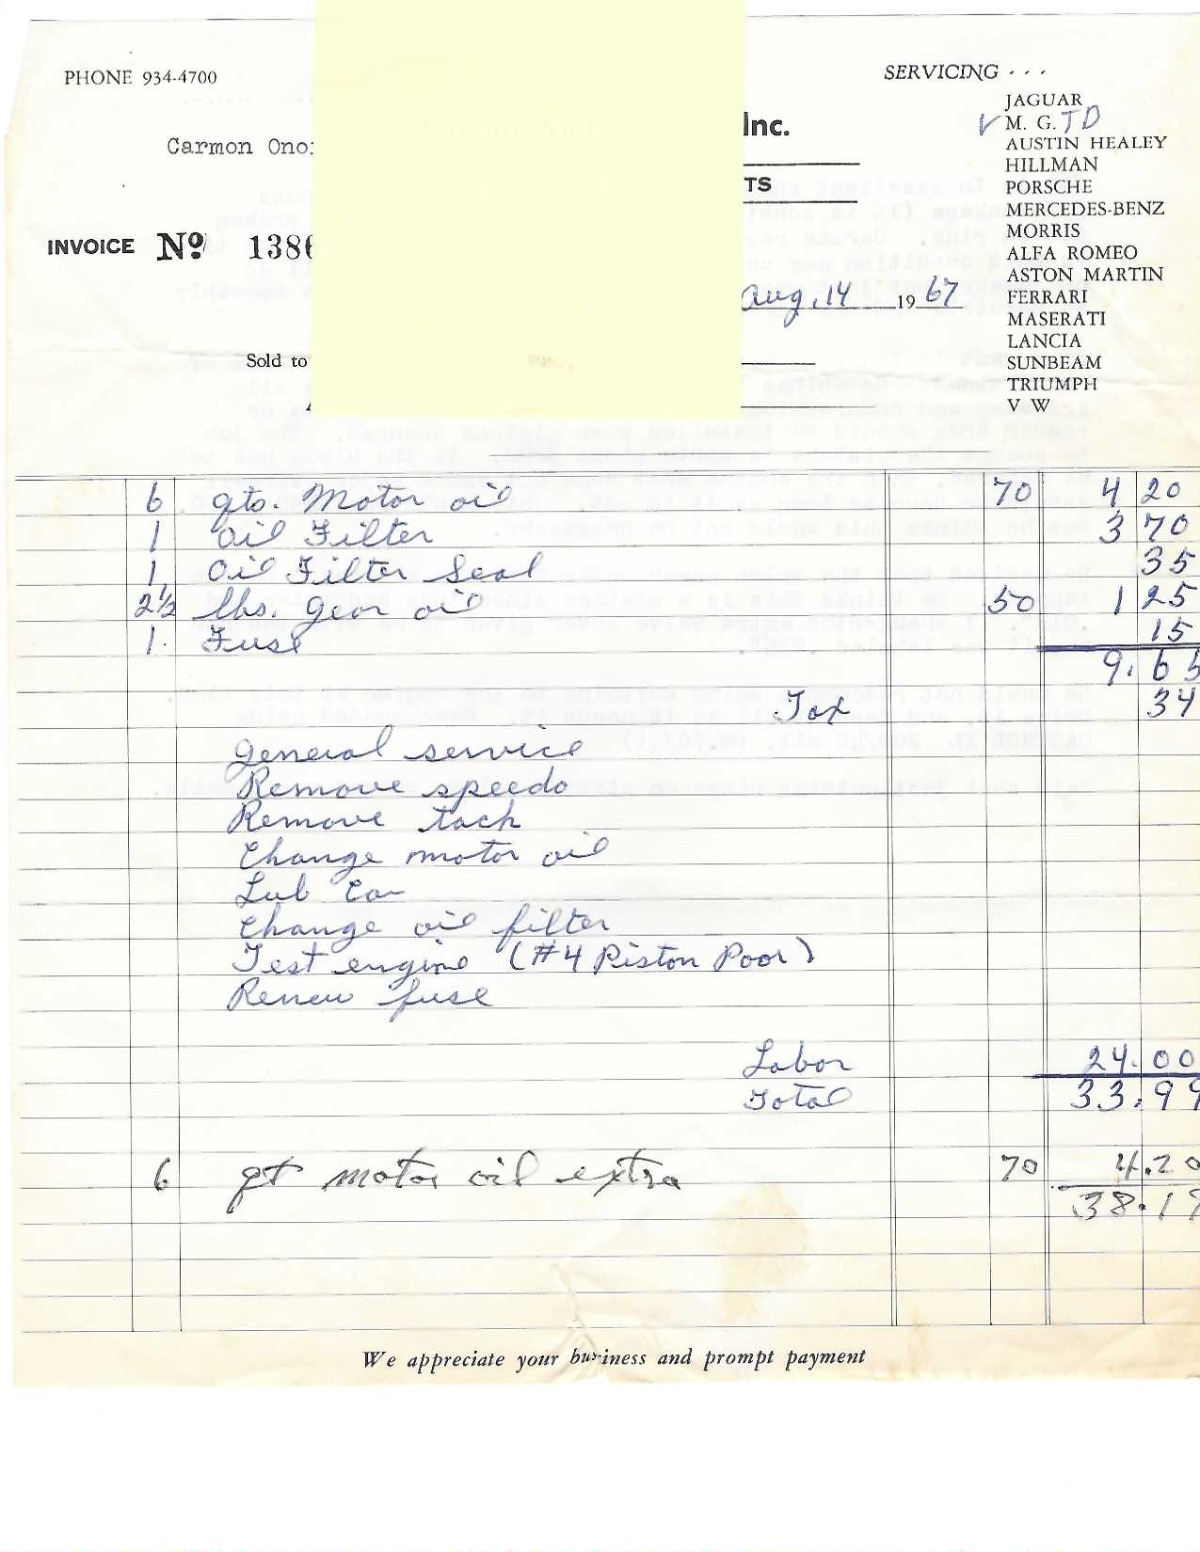 PHONE 934-4700
SERVICING . . .
JAGUAR
Inc.
✓ M. G. TD
Carmon Ono
AUSTIN HEALEY
HILLMAN
TS
PORSCHE
MERCEDES-BENZ
MORRIS
INVOICE Nº 1386
ALFA ROMEO
ASTON MARTIN
Aug, 14 1967
FERRARI
MASERATI
LANCIA
Sold to
SUNBEAM
TRIUMPH
V W
6 qts. Motor oil 70 4 20
1 Oil Filter 3 70
1 Oil Filter Seal 35
2½ lbs. Gear oil 50 1 25
1 Fuse 15
9.65
Tax 34
General service
Remove speedo
Remove tach
Change motor oil
Lub Car
Change oil filter
Test engine (#4 Piston Poor)
Renew fuse
Labor 24.00
Total 33.99
6 qt motor oil extra 70 4.20
38.19
We appreciate your business and prompt payment